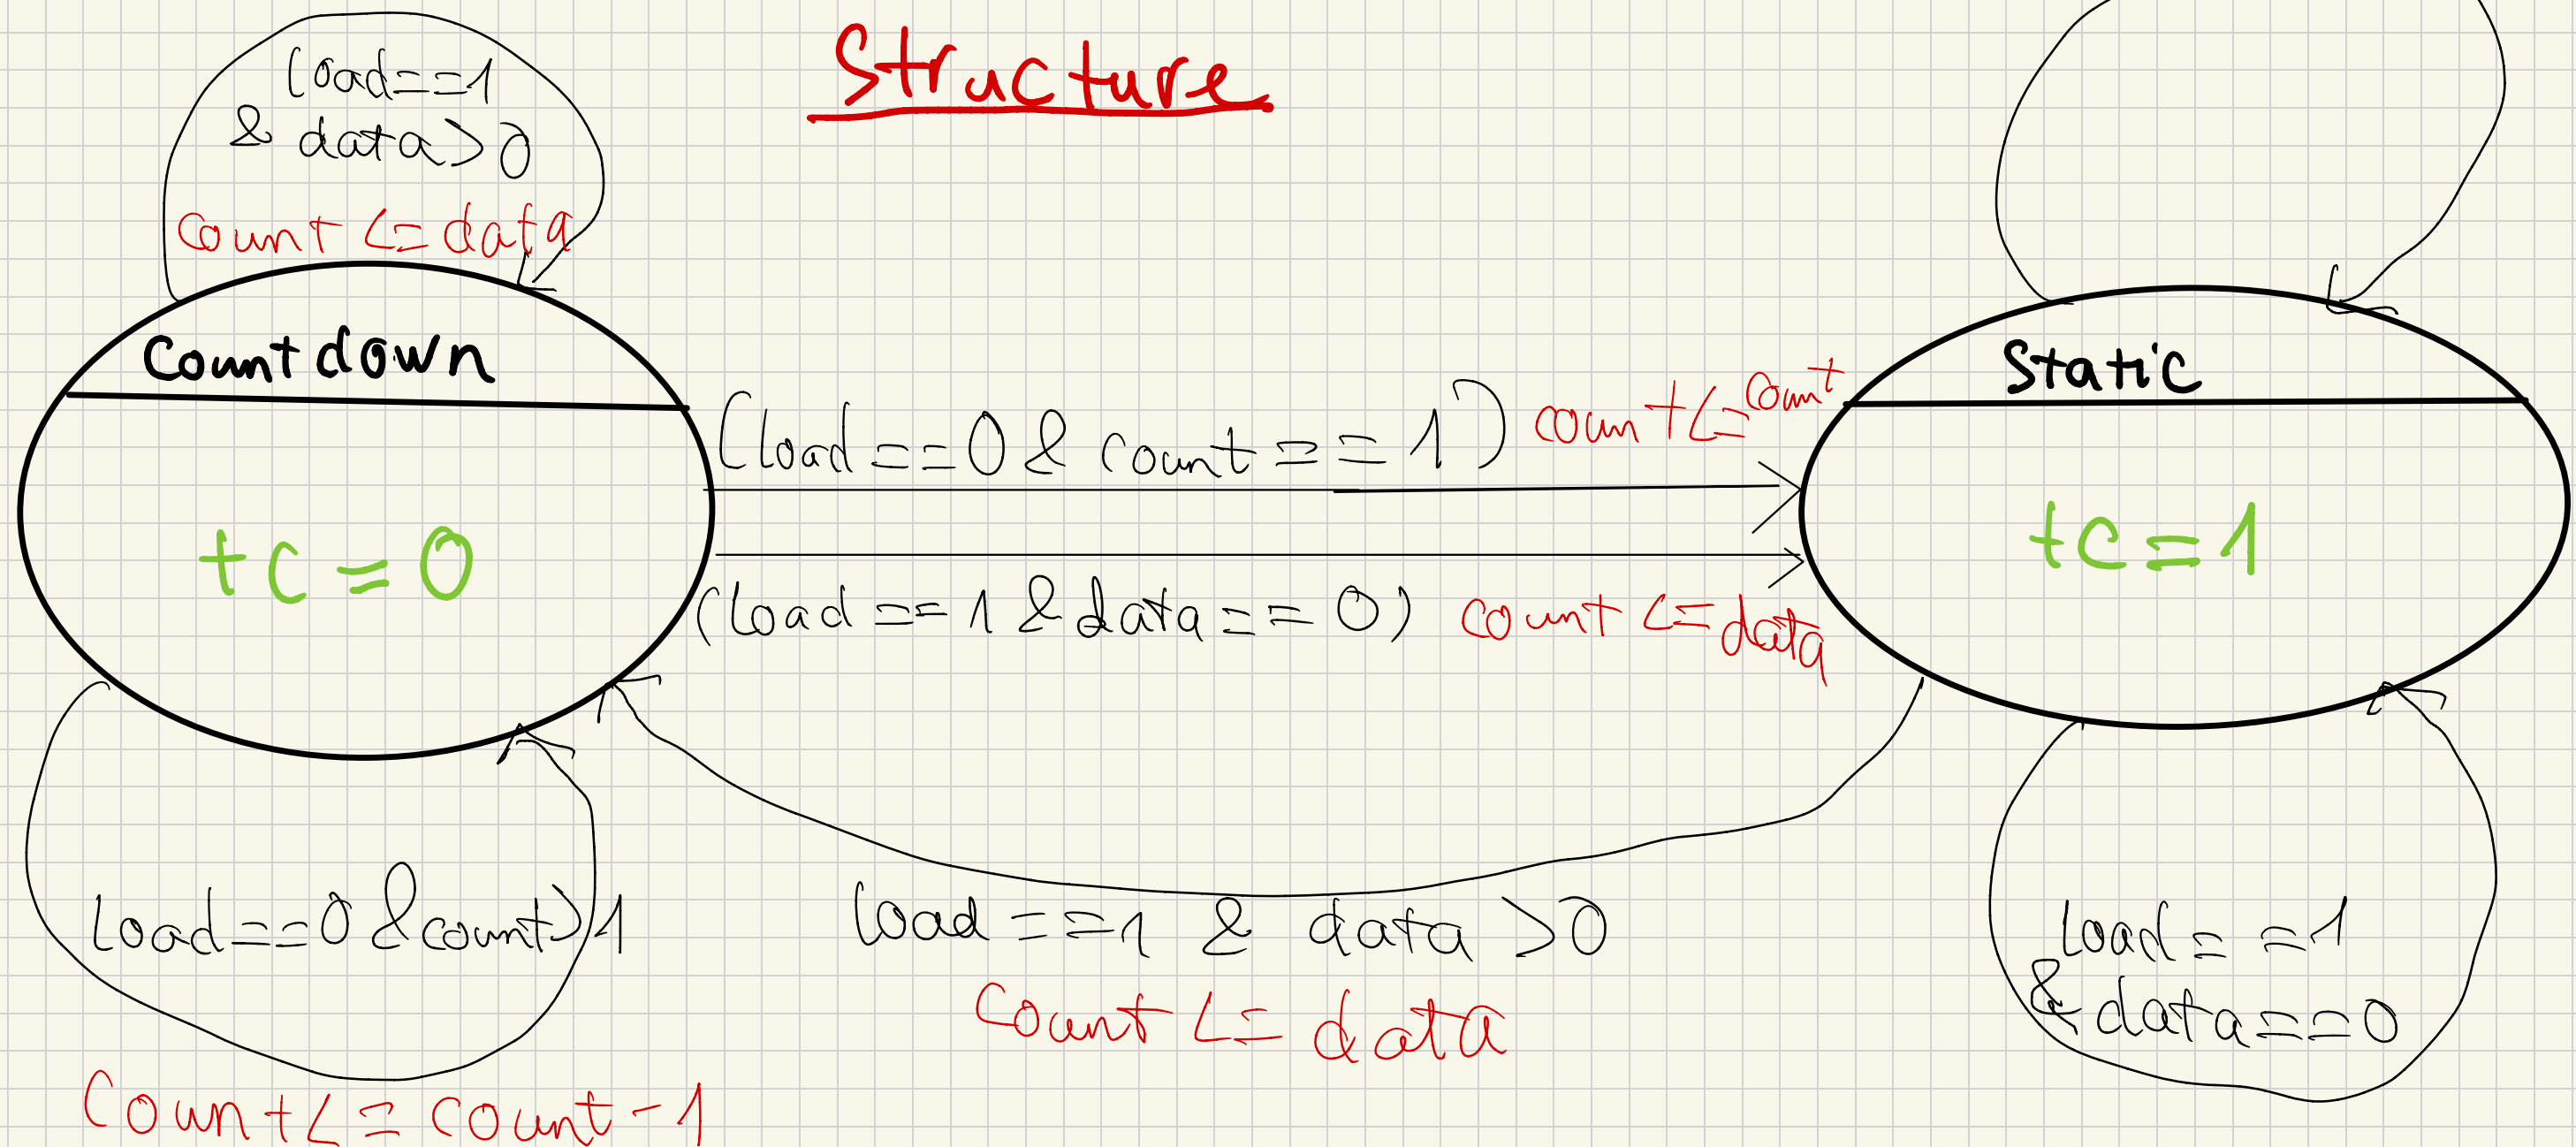 Structure
load==1
& data>0
count <= data
Countdown
tc=0
(load==0 & count==1) count <= count
(load==1 & data==0) count <= data
Static
tc=1
load==0 & count>1
count <= count-1
load==1 & data>0
count <= data
load==1
& data==0